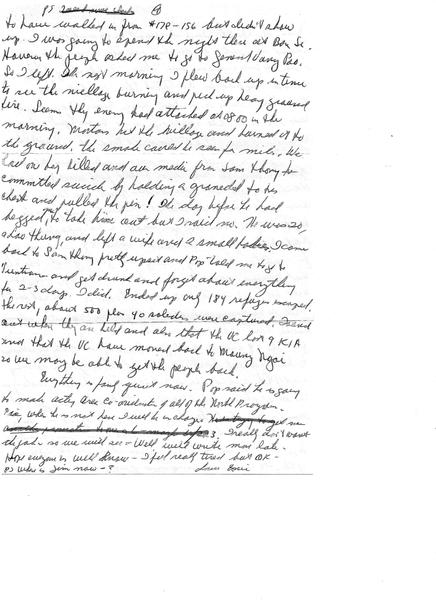 PS
to have walked in from #178-156 but didn't show
up. I was going to spend the night there at Ban Se.
However the people asked me to go to General Vang Pao.
So I left. The next morning I flew back up in time
to see the village burning and pick up heavy ground
fire. Seems the enemy had attacked at 0800 in the
morning. Mortars hit the village and burned it to
the ground. The smoke could be seen for miles. We
had one killed and our medic from Sam Thong
committed suicide by holding a granade to his
chest and pulled the pin! The day before he had
begged me to take him out but I said no. He was 20,
and left a wife and 2 small babies. I came
back to Sam Thong pretty upset and Pop told me to go to
Vientiane and get drunk and forget about everything
for 2-3 days. I did. Ended up only 184 refugees escaped.
the rest, about 500 plus 40 soldiers were captured.
out where they are held and also that the VC lost 9 KIA
and that the VC have moved back to Muong Ngai
so we may be able to get the people back.
Everything is fairly quiet now. Pop said he is going
to make acting area co-ordinator of all of the North Program.
when he is not here I will be in charge.
I really don't want
the job. so we will see - Well will write more later.
Hope everyone is well & know - I feel really tired but OK -
PS where is Jim now - ?